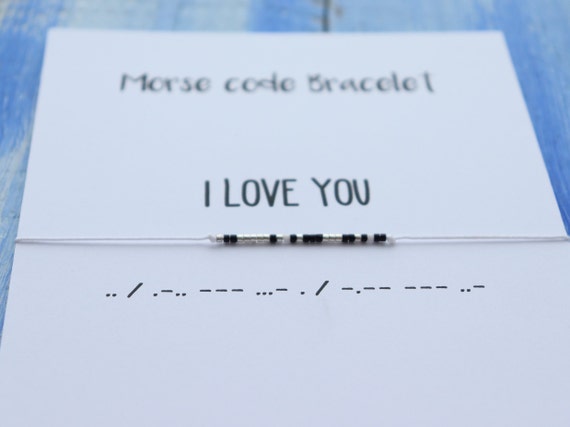 Morse code Bracelet
I LOVE YOU
.. / .-.. --- ...- . / -.-- --- ..-